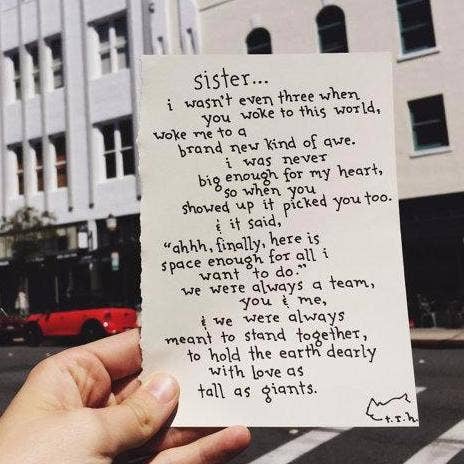 sister...
i wasn't even three when
you woke to this world,
woke me to a
brand new kind of awe.
i was never
big enough for my heart,
so when you
showed up it picked you too.
& it said,
"ahhh, finally, here is
space enough for all i
want to do."
we were always a team,
you & me,
& we were always
meant to stand together,
to hold the earth dearly
with love as
tall as giants.
t.r.h.